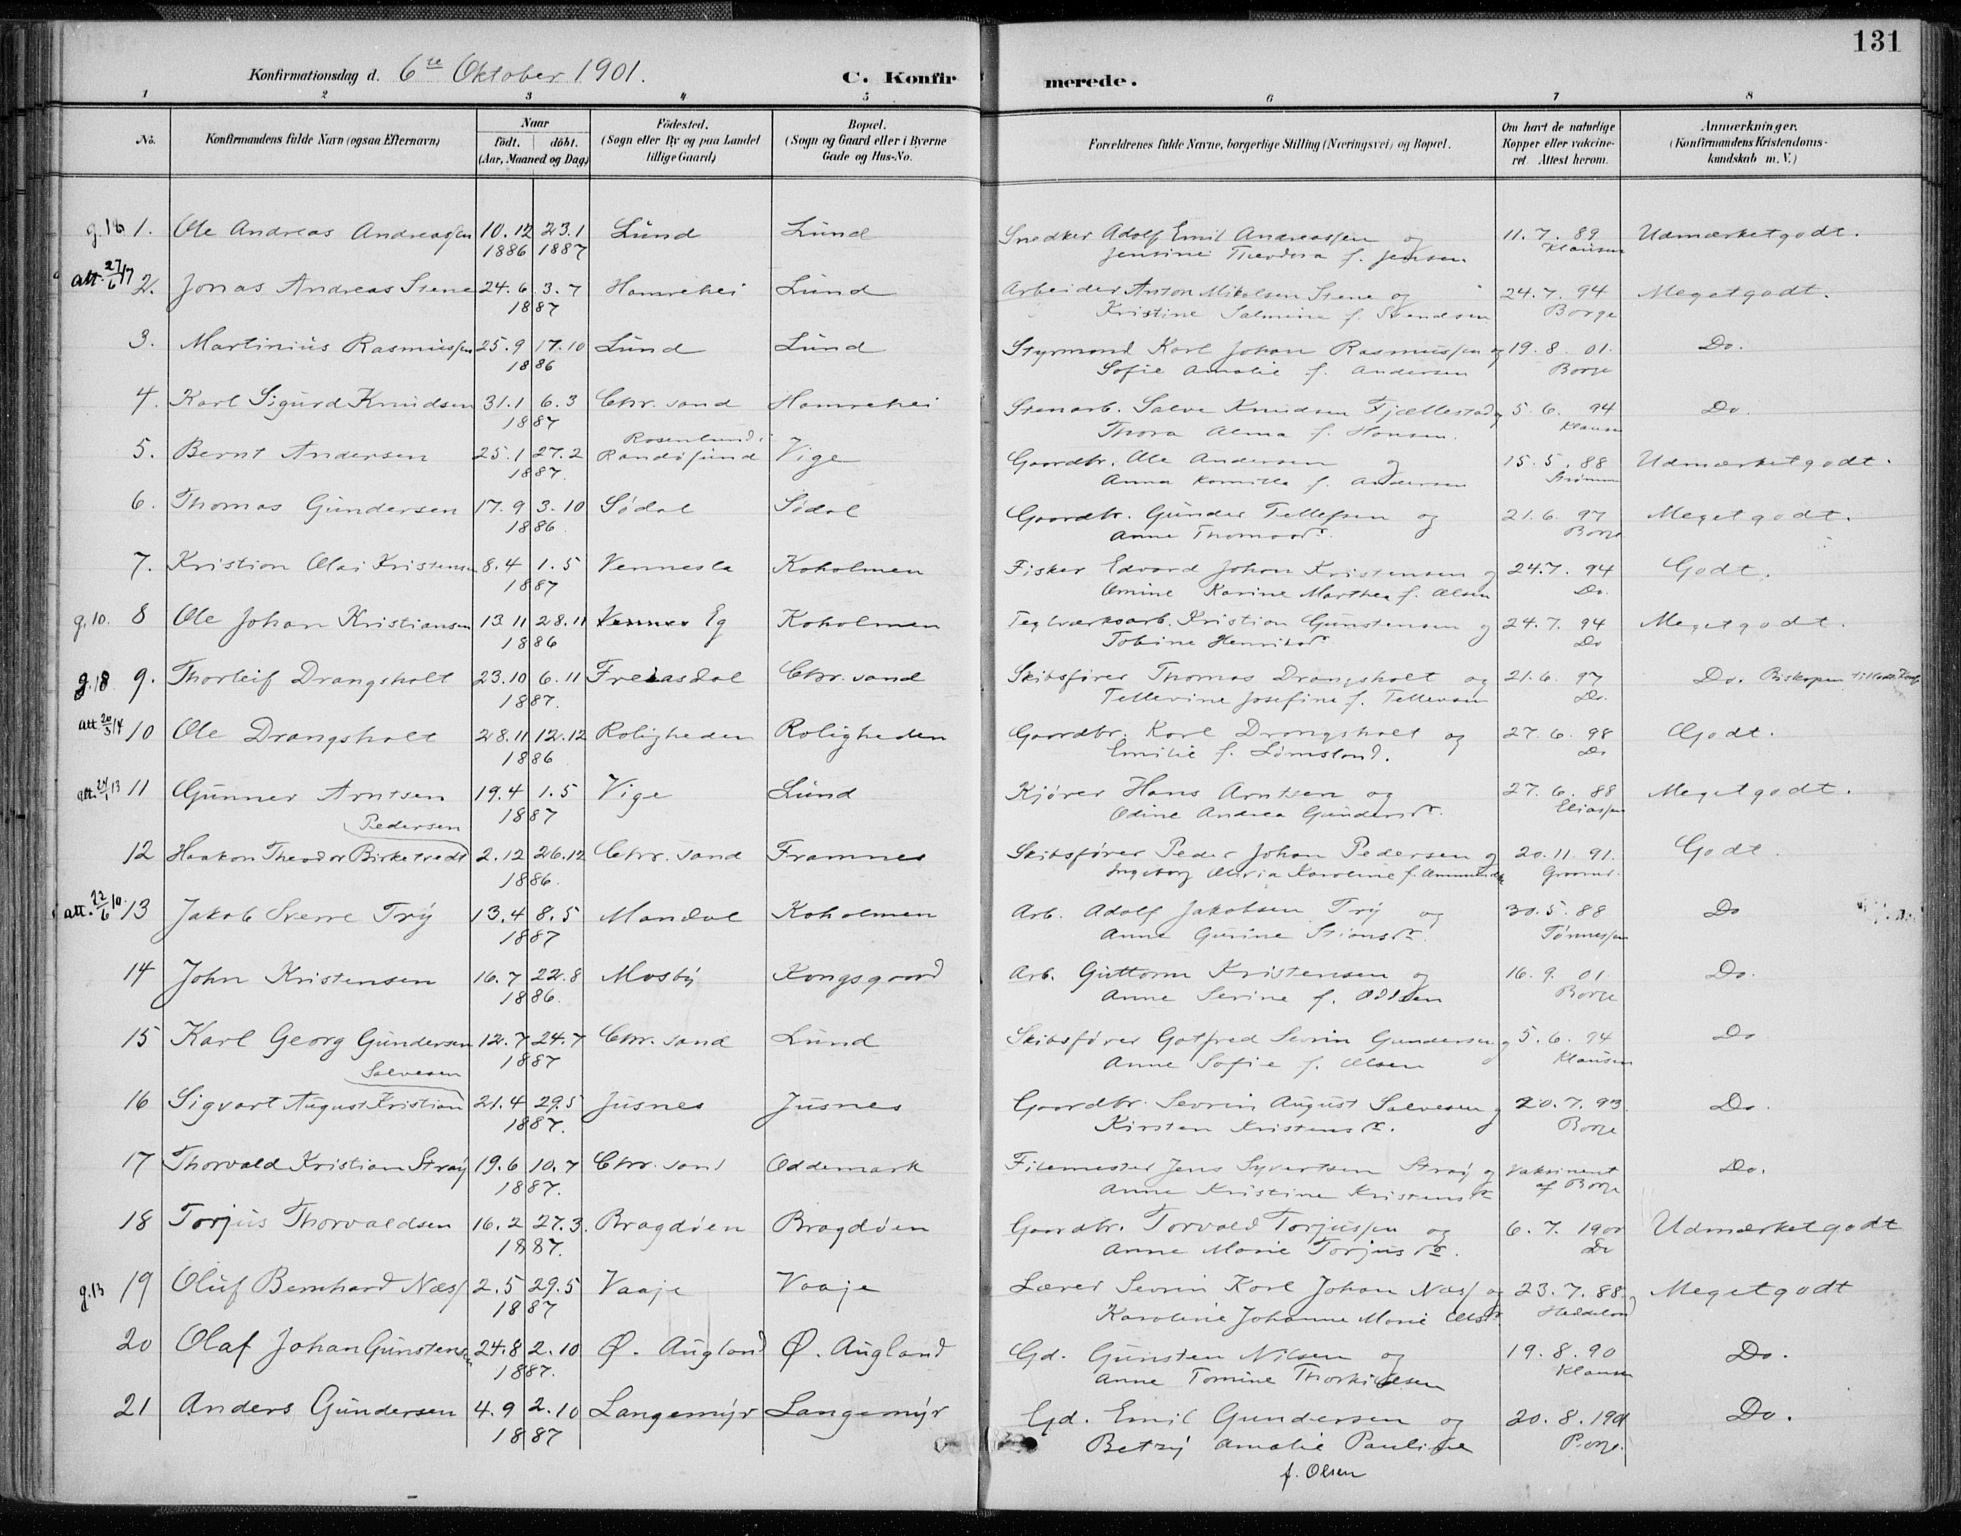 131
Konfirmationsdag d. 6te Oktober 1901. C. Konfir merede.
1 2 3 4 5 6 7 8
No. Konfirmandens fulde Navn (ogsaa Efternavn) Naar födt. döbt. (Aar, Maaned og Dag) Födested. (Sogn eller By og paa Landet tillige Gaard) Bopæl. (Sogn og Gaard eller i Byerne Gade og Hus-No. Forældrenes fulde Navne, borgerlige Stilling (Næringsvei) og Bopæl. Om havt de naturlige Kopper eller vakcineret Attest herom. Anmærkninger. (Konfirmandens Kristendomskundskab m. V.)
g.16 1. Ole Andreas Andreassen 10.12 23.1 Lund Lund Snedker Adolf Emil Andreassen og 11.7.89 Udmærket godt.
1886 1887 Jensine Theodora f. Jensen Klausen
att. 27/6 17 2. Jonas Andreas Stene 24.6 3.7 Hamrehei Lund Arbeider Anton Mikalsen Stene og 24.7.94 Meget godt.
1887 Kristine Salmine f. Svendsen Borge
3. Martinius Rasmussen 25.9 17.10 Lund Lund Styrmand Karl Johan Rasmussen og 19.8.01. Do.
1886 Sofie Amalie f. Andersen Borge
4. Karl Sigurd Knudsen 31.1 6.3 Chr. sand Hamrehei Stenarb. Salve Knudsen Fjællestad og 5.6.94 Do.
1887 Thora Alma f. Hansen. Klausen
5. Bernt Andersen 25.1 27.2 Rosenlund i Randøsund Vige Gaardbr. Ole Andersen og 15.5.88 Udmærket godt.
1887. Anna Kamilla f. Andersen
6. Thomas Gundersen 17.9 3.10 Sødal Sødal Gaardbr. Gunder Tellefsen og 21.6.97 Meget godt.
1886. Anne Thomasdr. Borge
7. Kristian Olai Kristensen 8.4 1.5 Vennesla Koholmen Fisker Edvard Johan Kristensen og 24.7.94 Godt.
1887 Amine Karine Marthea f. Olsen Do.
g.10. 8 Ole Johan Kristiansen 13.11 28.11 Vennes Eg Koholmen Teglværksarb. Kristian Gunstensen og 24.7.94 Meget godt.
1886 Tobine Henriksdr. Do
g.18 9. Thorleif Drangsholt 23.10 6.11 Freiasdal Chr. sand Skibsfører Thomas Drangsholt og 21.6.97 Do. Biskopen
1887. Tellevine Josefine f. Tellevsen Do.
att 20/3 14 10 Ole Drangsholt 28.11 12.12 Roligheden Roligheden Gaardbr. Karl Drangsholt og 27.6.98 Godt.
1886 Emilie f. Lømsland. Do
att. 24/1 13 11 Gunner Arntsen 19.4 1.5 Vige Lund Kjører Hans Arntsen og 27.6.88 Meget godt.
1887 Odine Andrea Gundersdr. Eliassen
Pedersen
12 Haakon Theodor Birketvedt 2.12 26.12 Chr. sand Framnes Skibsfører Peder Johan Pedersen og 20.11.91. Godt.
1886. Ingeborg Maria Karoline f.
att. 22/6 10. 13 Jakob Sverre Try 13.4 8.5 Mandal Koholmen Arb. Adolf Jakobsen Try og 30.5.88 Do
1887 Anne Gurine Stiansdr. Tønnessen
14 John Kristensen 16.7 22.8 Mosby Kongsgaard Arb. Guttorm Kristensen og 16.9.01. Do.
1886. Anne Serine f. Oddsen Borge
15 Karl Georg Gundersen 12.7 24.7 Chr. sand Lund Skibsfører Gotfred Sevrin Gundersen og 5.6.94 Do
1887 Anne Sofie f. Olsen Klausen
Salvesen
16 Sigvart August Kristian 21.4 29.5 Jusnes Jusnes Gaardbr. Sevrin August Salvesen og 20.7.93. Do.
1887. Kirsten Kristensdr. Borge
17 Thorvald Kristian Stray 19.6 10.7 Chr. sand Oddemark Filemester Jens Syvertsen Stray og Vaksinert Do.
1887. Anne Kristine Kristensdr af Borge
18 Torjus Thorvaldsen 16.2 27.3. Bragdøen Bragdøen Gaardbr. Torvald Torjussen og 6.7.1900 Udmærket godt
1887. Anne Marie Torjusdr. Do
g.13 19 Oluf Bernhard Næss 2.5 29.5 Vaaje Vaaje Lærer Sevrin Karl Johan Næss og 23.7.88. Meget godt
1887 Karoline Johanne Marie Olsdr
20 Olaf Johan Gunstensen 24.8 2.10 Ø. Augland Ø. Augland Gd. Gunsten Nilsen og 19.8.90 Do.
1887. Anne Tomine Thorkildsen Klausen
21 Anders Gundersen 4.9 2.10 Langemyr Langemyr Gd. Emil Gundersen og 20.8.1901 Do.
1887 Betzy Amalie Pauline Borge.
f. Olsen